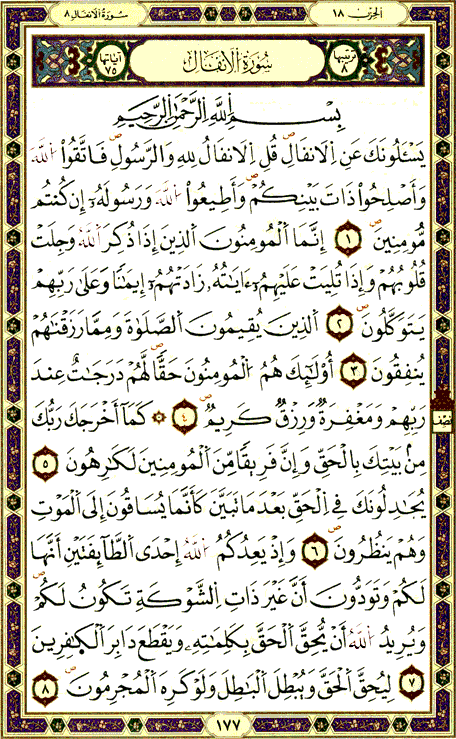 الحِزْب ١٨
سُورَةُ الَانفَال ٨
ترتيبها ٨
سُورَةُ الَانفَال
آياتها ٧٥
بِسْمِ اِللَّهِ اِلرَّحْمَٰنِ اِلرَّحِيمِ
يَسْـَٔلُونَكَ عَنِ اِلَانفَالِۖ قُلِ اِلَانفَالُ لِلهِ وَالرَّسُولِۖ فَاتَّقُواْ اُللَّهَ
وَأَصْلِحُواْ ذَاتَ بَيْنِكُمْۖ وَأَطِيعُواْ اُللَّهَ وَرَسُولَهُۥٓ إِن كُنتُم
مُّومِنِينَۖ ١ إِنَّمَا اَلْمُومِنُونَ اَلذِينَ إِذَا ذُكِرَ اَللَّهُ وَجِلَتْ
قُلُوبُهُمْ وَإِذَا تُلِيَتْ عَلَيْهِمُۥٓ ءَايَٰتُهُۥ زَادَتْهُمُۥٓ إِيمَٰنًا وَعَلَىٰ رَبِّهِمْ
يَتَوَكَّلُونَۖ ٢ اَلذِينَ يُقِيمُونَ اَلصَّلَوٰةَ وَمِمَّا رَزَقْنَٰهُمْ
يُنفِقُونَۖ ٣ أُوْلَٰٓئِكَ هُمُ اُلْمُومِنُونَ حَقًّا لَّهُمْ دَرَجَٰتٌ عِندَ
رَبِّهِمْ وَمَغْفِرَةٌ وَرِزْقٌ كَرِيمٌۖ ٤ كَمَآ أَخْرَجَكَ رَبُّكَ
مِنۢ بَيْتِكَ بِالْحَقِّ وَإِنَّ فَرِيقًا مِّنَ اَلْمُومِنِينَ لَكَٰرِهُونَ ٥
يُجَٰدِلُونَكَ فِي اِلْحَقِّ بَعْدَ مَا تَبَيَّنَ كَأَنَّمَا يُسَاقُونَ إِلَى اَلْمَوْتِ
وَهُمْ يَنظُرُونَۖ ٦ وَإِذْ يَعِدُكُمُ اُللَّهُ إِحْدَى اَلطَّآئِفَتَيْنِ أَنَّهَا
لَكُمْۖ وَتَوَدُّونَ أَنَّ غَيْرَ ذَاتِ اِلشَّوْكَةِ تَكُونُ لَكُمْۖ
وَيُرِيدُ اُللَّهُ أَنْ يُّحِقَّ اَلْحَقَّ بِكَلِمَٰتِهِۦ وَيَقْطَعَ دَابِرَ اَلْكَٰفِرِينَ
٧ لِيُحِقَّ اَلْحَقَّ وَيُبْطِلَ اَلْبَٰطِلَ وَلَوْ كَرِهَ اَلْمُجْرِمُونَۖ ٨
١٧٧